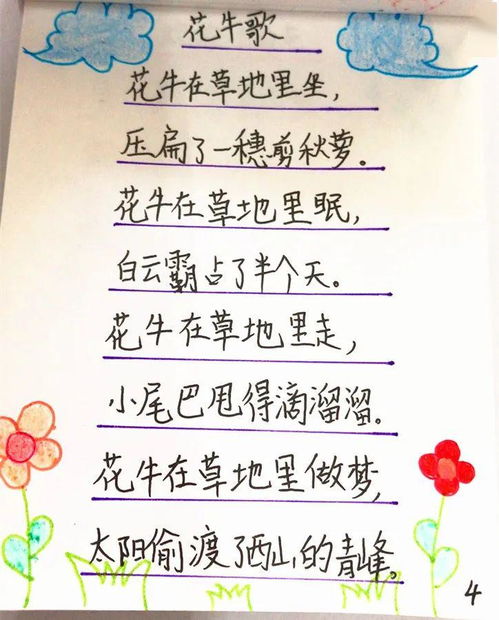 花牛歌
花牛在草地里坐，
压扁了一穗剪秋萝。
花牛在草地里眠，
白云霸占了半个天。
花牛在草地里走，
小尾巴甩得滴溜溜。
花牛在草地里做梦，
太阳偷渡了西山的青峰。
4